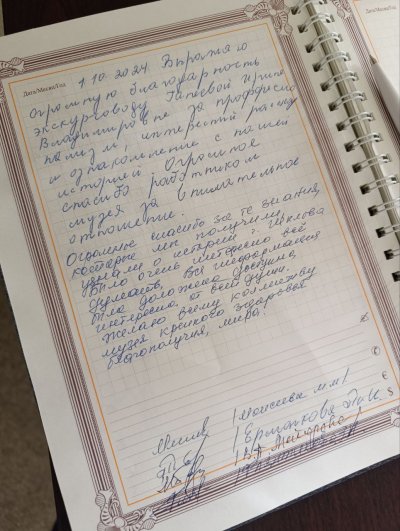 Дата/Месяц/Год
1.10.2024 Выражаю
огромную благодарность
экскурсоводу Ирине
Владимировне за професио
нализм, интересный рассказ
и ознакомление с нашей
историей. Огромное
спасибо работникам
музея за внимательное
отношение.
Огромное спасибо за те знания,
которые мы получили,
узнали о истории г.
Было очень интересно всё
слушать. Вся информация
была доложена доступно,
интересно, от всей души.
Желаю всему коллективу
музея крепкого здоровья
благополучия, мира!
/Моисеева М.М/